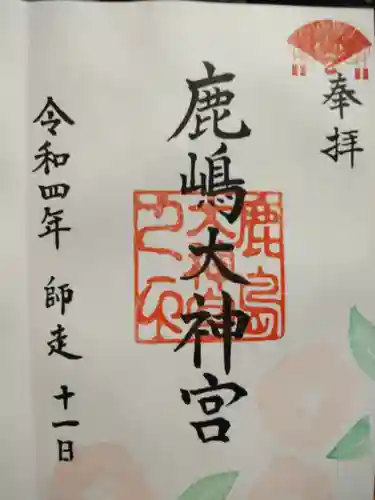 奉拝
鹿嶋大神宮
令和四年 師走 十一日